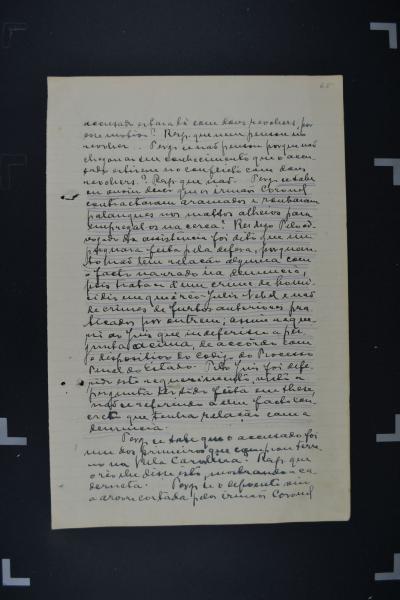 65
accusado estava lá com dous revolvers, por
esse motivo? Resp. que nem pensou no
revolver. Perg. se não pensou porque não
chegou ao seu conhecimento que o accu-
sado estivesse no conflicto com dous
revolvers? Resp. que não. Perg. se sabe
ou ouviu dizer que os irmãos Coronel
contractavam aramados e roubavam
palanques nos mattos alheios para
empregal os na cerca?
da assistencia foi dito que
pergunta feita pela defesa, porquan-
to não tem relação alguma com
o facto narrado na denuncia,
pois trata-se d'um crime de homi-
cidio em que
de crimes de furtos anteriores pra-
ticados por outrem; assim reque-
ria ao Juiz que indeferisse a per-
gunta acima, de accordo com
o dispositivo do Codigo do Processo
Penal do Estado. Pelo Juiz foi defe-
rido este requerimento, visto a
pergunta ter sido feita em these,
não se referindo a um facto con-
creto que tenha relação com a
denuncia.
Perg. se sabe que o accusado foi
um dos primeiros que comprou terre-
no na Villa Carolina? Resp. que
o réo lhe disse isto, mostrando a ca-
derneta. Perg. se o depoente viu
a arvore cortada pelos irmãos Coronel